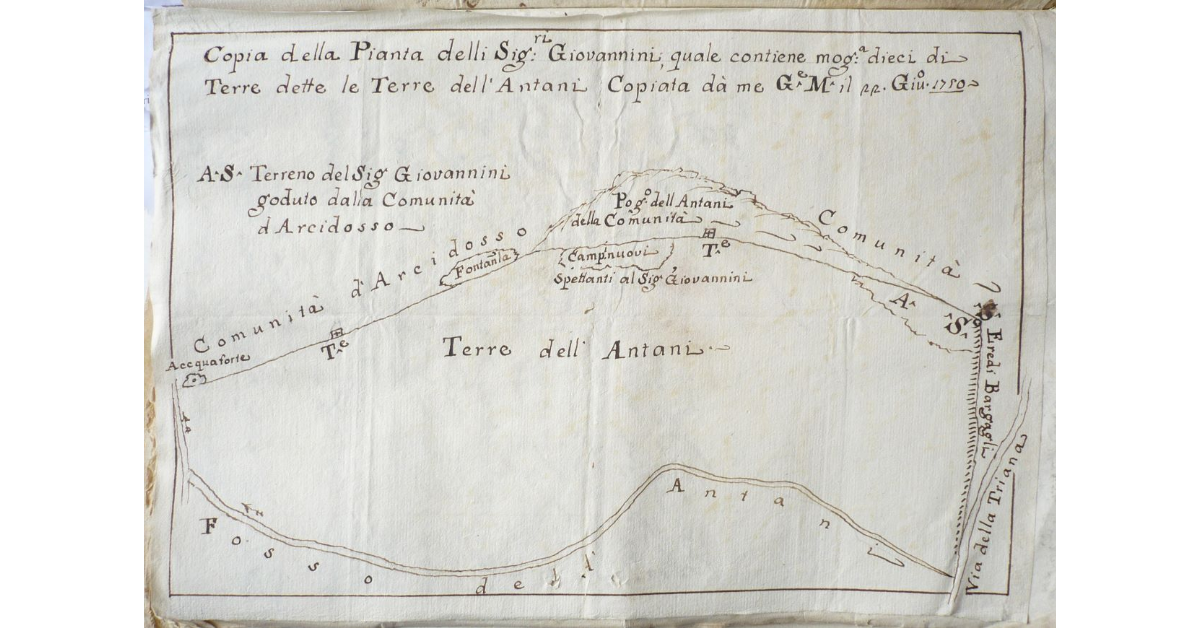 Copia della Pianta delli Sig:ri Giovannini, quale contiene mog:a dieci di
Terre dette le Terre dell'Antani Copiata dà me Ge Mo il 22. Giuo. 1750
A. S. Terreno del Sig Giovannini
goduto dalla Comunità
d'Arcidosso
Pogo dell'Antani
della Comunità
Comunità d'Arcidosso
Comunità
Fontanla
Camp nuovi
Te
Spettanti al Sig Giovannini
A.
S.
Te
Acequaforte
Terre dell'Antani
Eredi Bargagli
Via della Triana
Fosso dell' Antani